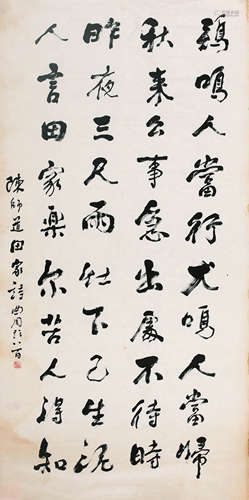 鷄鳴人當行犬鳴人當歸
秋来公事急出處不待時
昨夜三尺雨灶下已生泥
人言田家樂尔苦人得知
陳師道田家詩